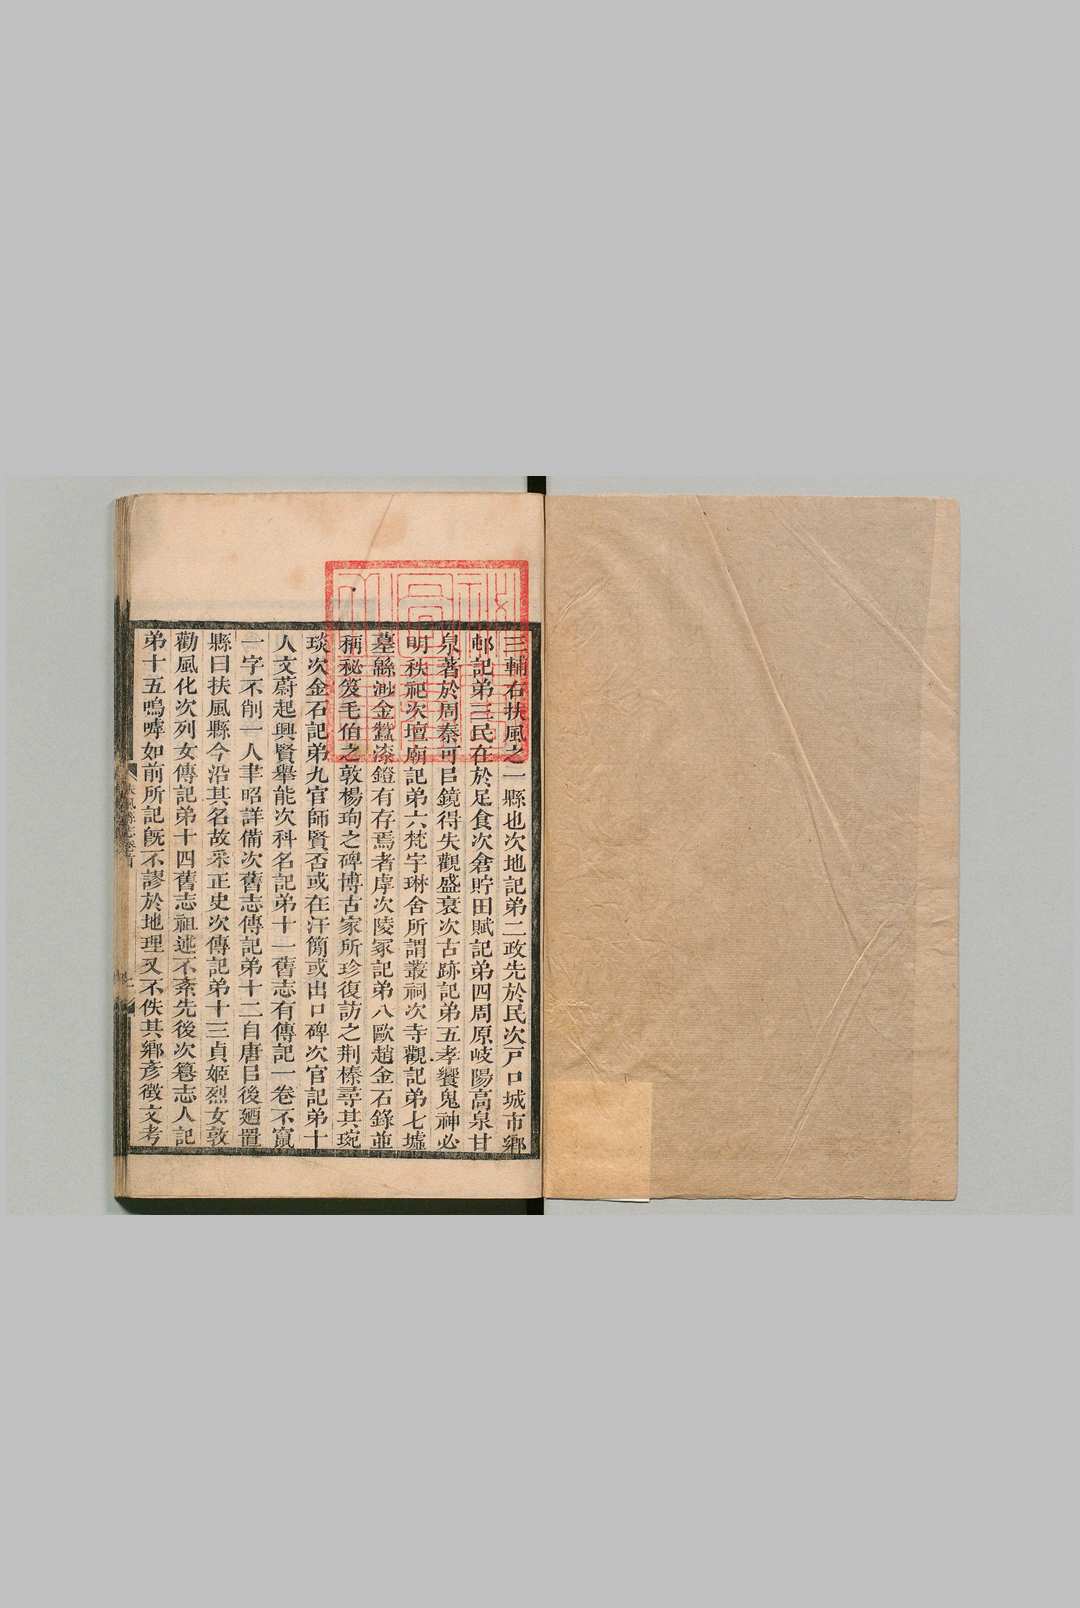 三輔右扶風之一縣也次地記弟二政先於民次戸口城市鄉
邨記弟三民在於足食次倉貯田賦記弟四周原岐陽高泉甘
泉著於周秦可㠯鏡得失觀盛衰次古跡記弟五孝饗鬼神必
明秩祀次壇廟記弟六梵宇琳舍所謂叢祠次寺觀記弟七墟
墓緜渺金蠶漆鐙有存焉者虖次陵冢記弟八歐趙金石錄並
稱秘笈毛伯之敦楊珣之碑博古家所珍復訪之荆榛尋其琬
琰次金石記弟九官師賢否或在汗簡或出口碑次官記弟十
人文蔚起興賢舉能次科名記弟十一舊志有傳記一卷不竄
一字不削一人聿昭詳備次舊志傳記弟十二自唐㠯後廼置
縣曰扶風縣今沿其名故采正史次傳記弟十三貞姬烈女敦
勸風化次列女傳記弟十四舊志祖述不紊先後次舊志人記
弟十五嗚嘑如前所記旣不謬於地理又不佚其鄉彥徵文考
扶風縣志卷首